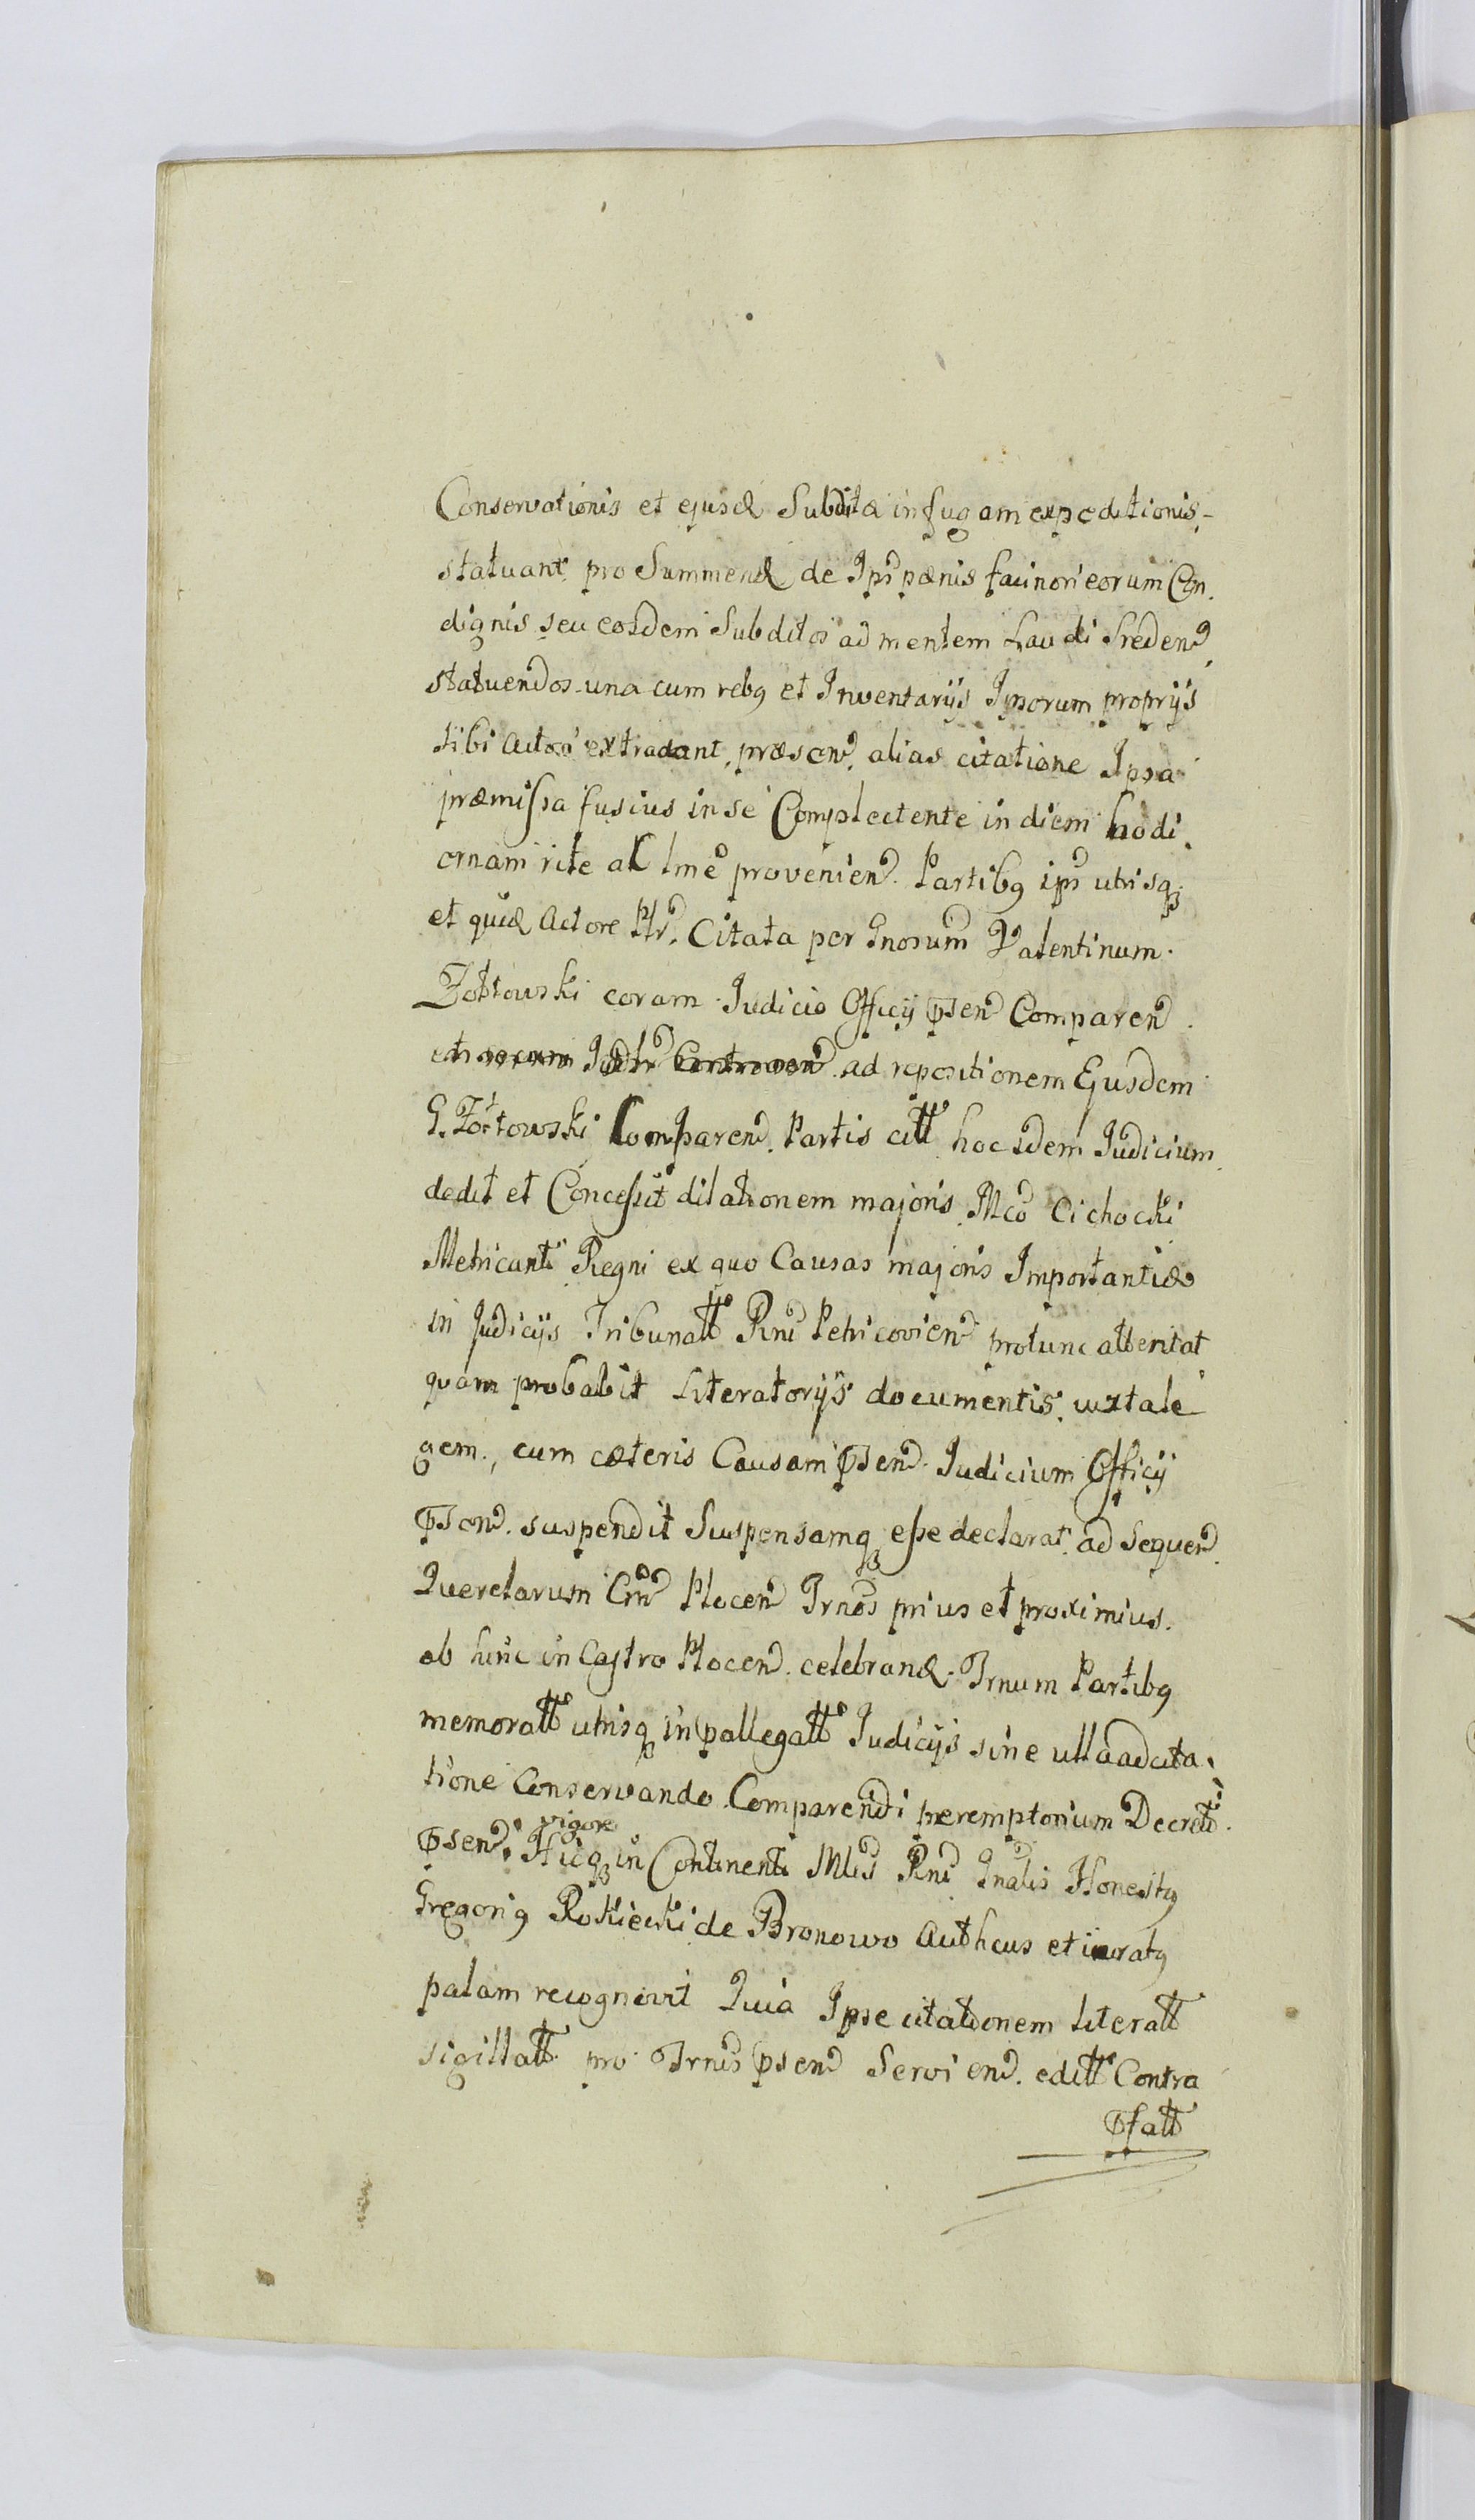 Conservationis et ejusd Subditæ in fugam expeditionis
statuant pro Summend de Ips pænis facinori eorum Con
dignis seu eosdem Subditos ad mentem Laudi Sreden
statuendos una cum rebq et Inventarÿs Ipsorum proprÿs
tibi Actori extradant, præsen alias citatione Ipsa
præmissa fusius in se Complectente in diem hodi
ernam rite ac lme provenien. Partibq ips utrisq
et quid Actore Ptr. Citata per Gnosum Valentinum
Zołtowski coram Judicio Officÿ psen Comparen
ad repositionem Ejusdem
G. Zołtowski Comparen. Partis citt hoc idem Judicium
dedit et Concessit dilationem majoris Mco Cichocki
Metricanti Regni ex quo Causas majoris Importantiæ
in Judicÿs Tribunalt Rni Petricovien protunc atteritat
quam probabit Literatorÿs documentis, iuxta le
gem, cum cæteris Causam psen. Judicium Officÿ
psen. suspendit Suspensamq esse declarat ad Sequen
Querelarum Crm Plocen Trnos prius et proximius
ab hinc in Castro Plocen. celebrand. Trnum Partibq
memoratt utrisq in pallegatt Judicÿs sine ulla adcita
tione Conservando Comparendi peremptorium Decreti
vigore
psen. Hicq in Continenti Mlis Rni Gnalis Honestq
Gregoriq Rokicki de Bronowo Authcus et iuratq
palam recognovit Quia Ipse citationem Literatt
sigillatt pro Trnis psen Servien. editt Contra
pfatt